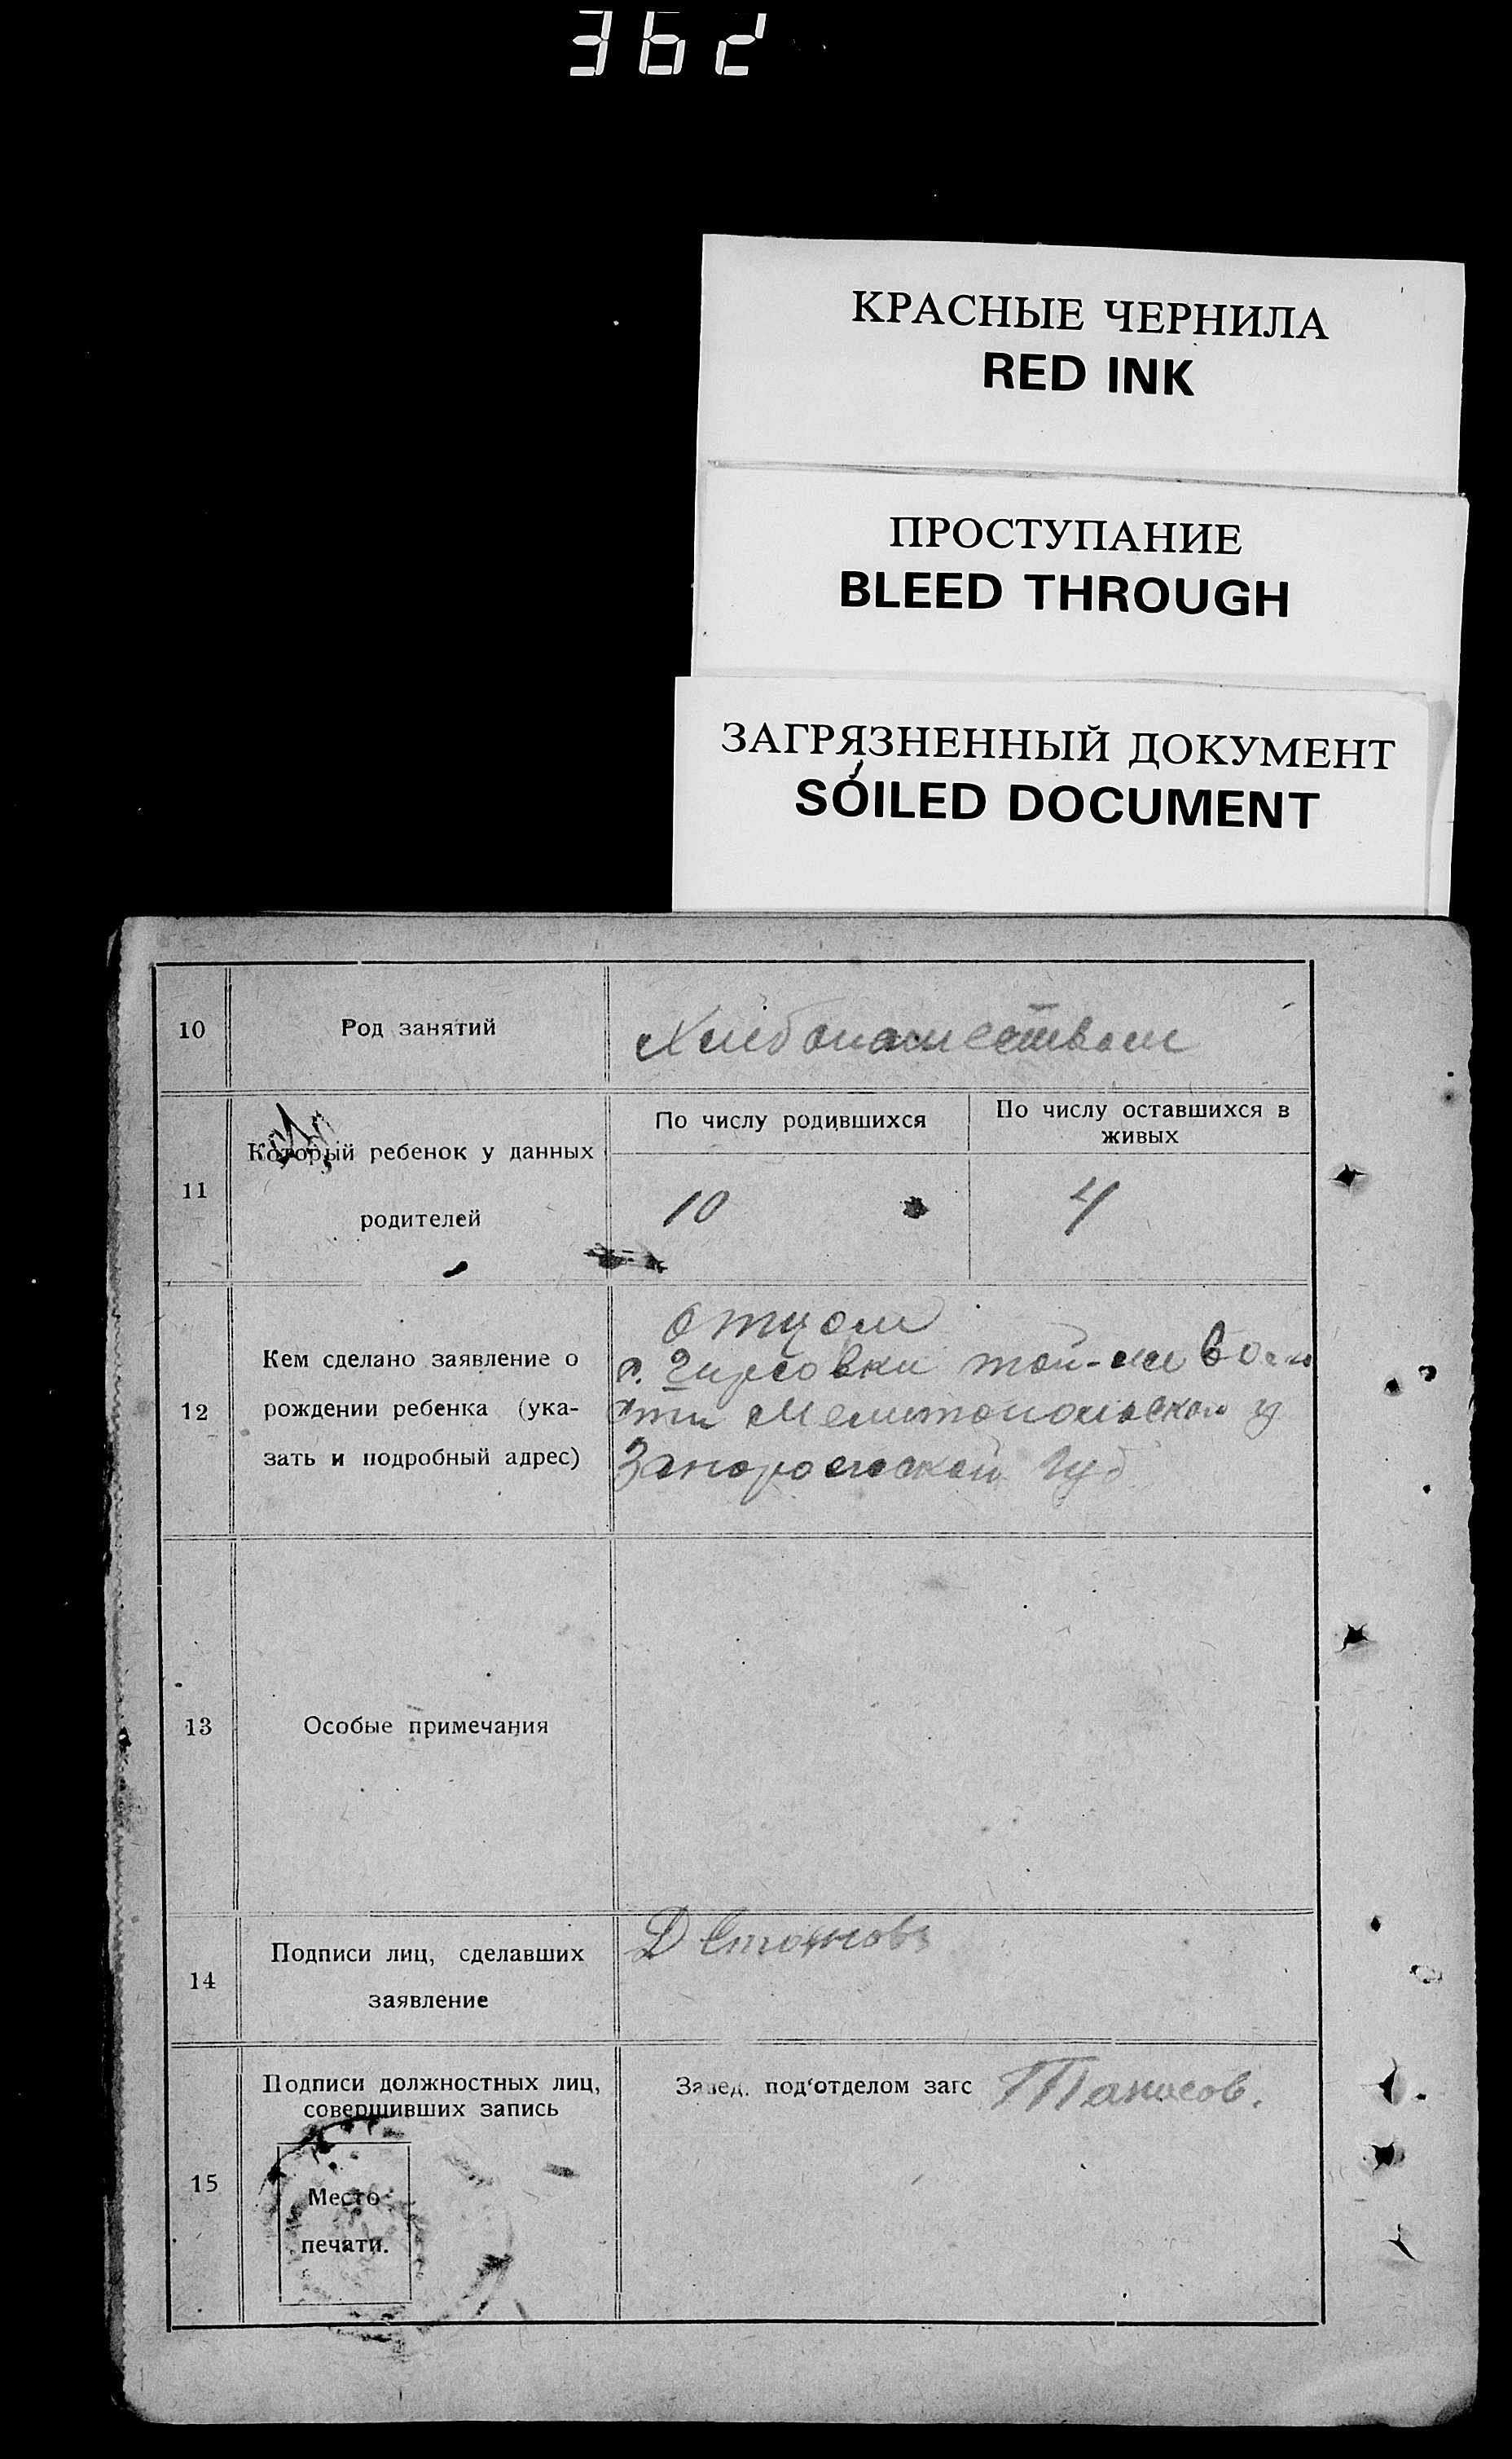 362
КРАСНЫЕ ЧЕРНИЛА
RED INK
ПРОСТУПАНИЕ
BLEED THROUGH
ЗАГРЯЗНЕННЫЙ ДОКУМЕНТ
SOILED DOCUMENT
10 Род занятий Хлебопашеством
11 Который ребенок у данных родителей
По числу родившихся
По числу оставшихся в живых
10 4
12 Кем сделано заявление о рождении ребенка (указать и подробный адрес)
Отцом
с. Гирсовки той-же Воло
сти Мелитопольского у
Запорожской Губ
13 Особые примечания
14 Подписи лиц, сделавших заявление
Д Стояновъ
15 Подписи должностных лиц, совершивших запись
Завед. под'отделом загс Танасов.
Место
печати.